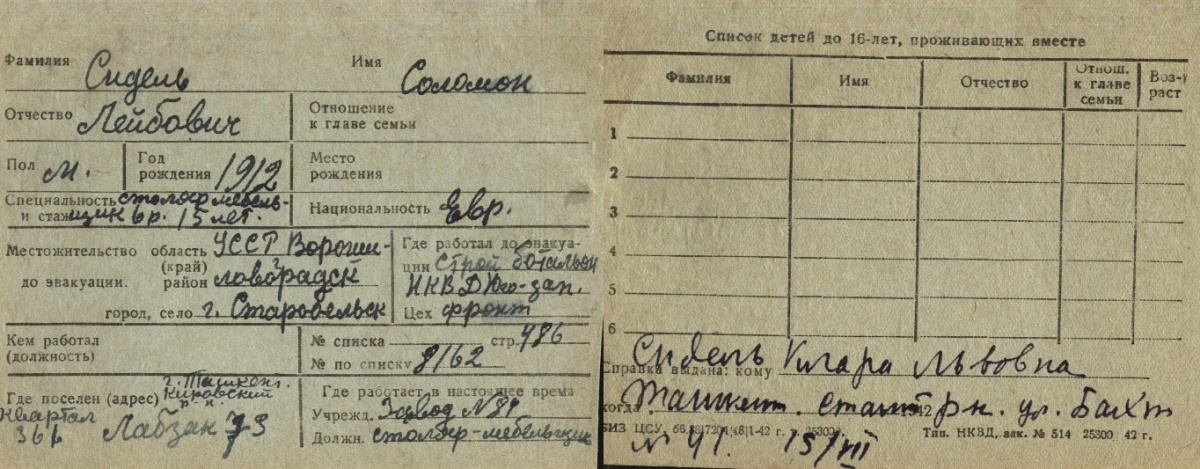 Фамилия Сидель Имя Соломон
Отчество Лейбович Отношение к главе семьи
Пол М. Год рождения 1912 Место рождения
Специальность и стаж столяр мебель-
щик 6 р. 15 лет. Национальность Евр.
Местожительство до эвакуации. область (край) УССР Вороши-
район ловоградск
город, село г. Старобельск
Где работал до эвакуа-
ции Строй батальон
НКВД Юго-зап.
Цех фронт
Кем работал (должность)
№ списка стр. 486
№ по списку 8/62
Где поселен (адрес) г. Ташкент.
Кировский
р-н.
Квартал
366 Лабзак 73
Где работает в настоящее время
Учрежд. Завод № 84
Должн. столяр-мебельщик
Список детей до 16-лет, проживающих вместе
Фамилия Имя Отчество Отнош. к главе семьи Воз-раст
1
2
3
4
5
6
Справка выдана: кому Сидель Клара Львовна
когда Ташкент. р-н. ул. Бахт
№ 41. 15/VII
БИЗ ЦСУ, 1-42 г. 25300. Тип. НКВД, зак. № 514 25300 42 г.